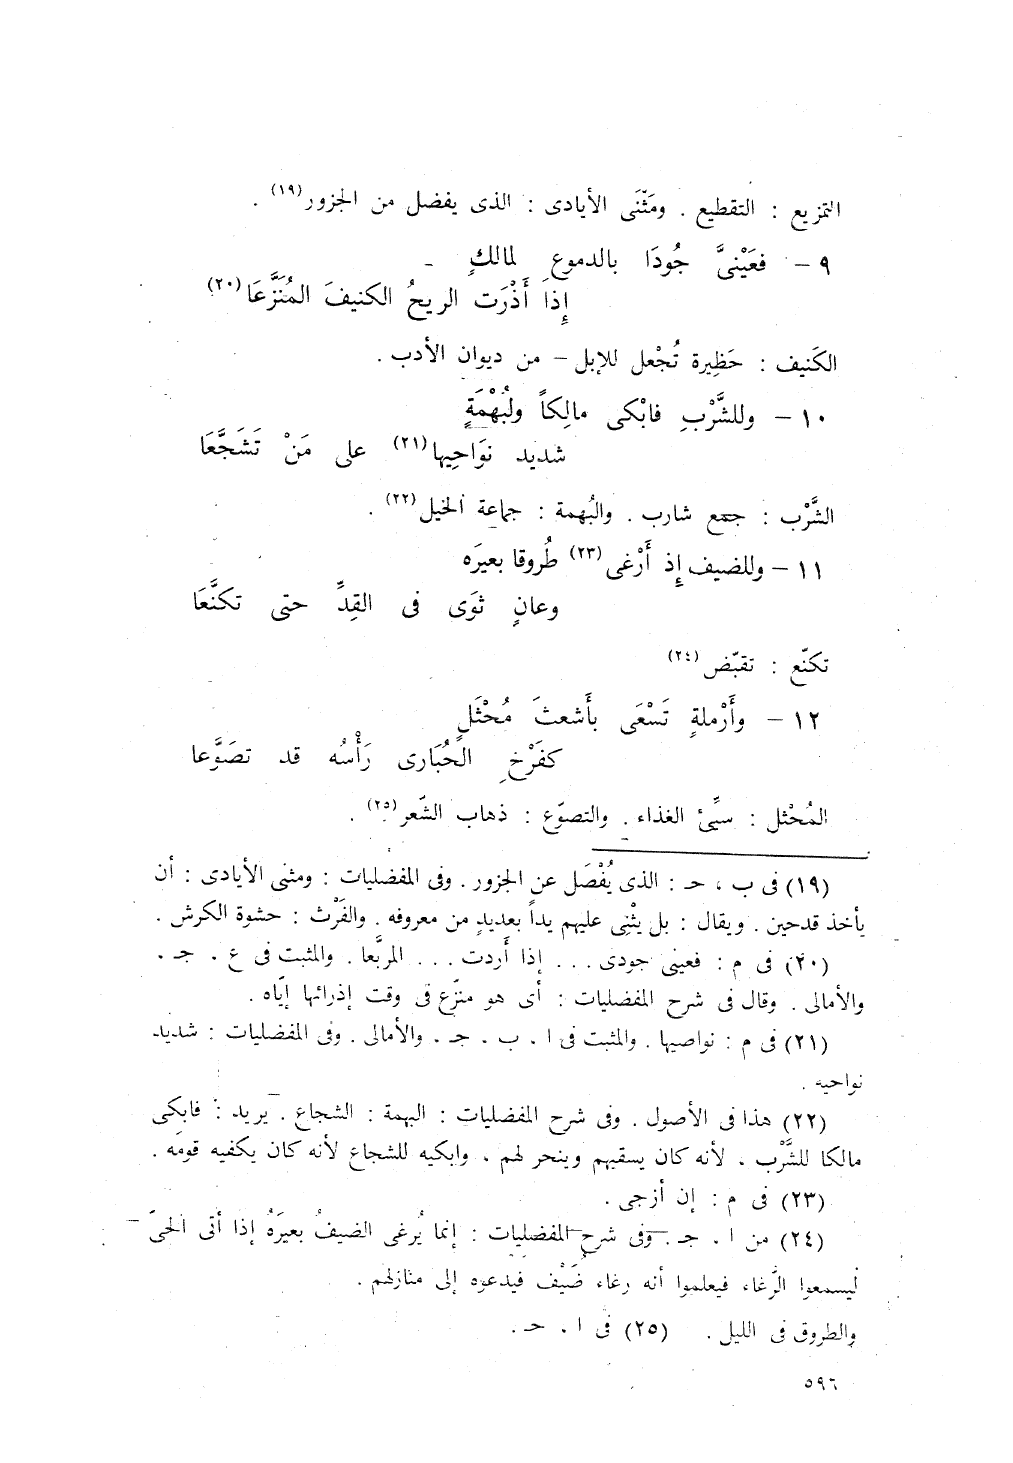 التمزيع : التقطيع . ومَثْنَى الأيادى : الذى يفضل من الجزور(١٩) .
٩ – فعَيْنىَّ جُودَا بالدموعِ لمالكٍ
إِذا أَذْرَت الريحُ الكنيفَ المُنَزَّعَا(٢٠)
الكَنيف : حَظِيرة تُجْعل للإبل – من ديوان الأدب .
١٠ – وللشَّرْبِ فابْكى مالِكاً ولبُهْمَةٍ
شديد نوَاحِيها(٢١) على مَنْ تَشَجَّعَا
الشَّرْب : جمع شارب . والبُهمة : جماعة الخيل(٢٢) .
١١ – وللضيف إِذ أَرْغى(٢٣) طُروقا بعيرَه
وعانٍ ثوَى فى القِدِّ حتى تكنَّعَا
تكنّع : تقبّض(٢٤)
١٢ – وأَرْملةٍ تَسْعَى بأَشعثَ مُحْثَلٍ
كفَرْخِ الحُبَارى رَأْسُه قد تصَوَّعا
المُحْثل : سيِّئ الغذاء . والتصوّع : ذهاب الشّعر(٢٥) .
(١٩) فى ب ، حـ : الذى يُفْصَل عن الجزور . وفى المفضليات : ومثنى الأيادى : أن
يأخذ قدحين . ويقال : بل يثْنِى عليهم يداً بعديدٍ من معروفه . والفَرْث : حشوة الكرش .
(٢٠) فى م : فعينى جودى . . . إذا أَردت . . . المربَّعا . والمثبت فى ع . جـ .
والأمالى . وقال فى شرح المفضليات : أى هو منزّع فى وقت إذرائها إيّاه .
(٢١) فى م : نواصيها . والمثبت فى ا . ب . جـ . والأمالى . وفى المفضليات : شديد
نواحيه .
(٢٢) هذا فى الأصول . وفى شرح المفضليات : البهمة : الشجاع . يريد : فابكى
مالكا للشَّرْب . لأنه كان يسقيهم وينحر لهم . وابكيه للشجاع لأنه كان يكفيه قومَه .
(٢٣) فى م : إن أزجى .
(٢٤) من ا . جـ . وفى شرح المفضليات : إنما يُرغى الضيفُ بعيرَهُ إذا أتى الحىّ –
ليسمعوا الرُّغاء فيعلموا أنه رغاء ضَيْف فيدعوه إلى منازلهم .
والطروق فى الليل . (٢٥) فى ا . حـ .
٥٩٦